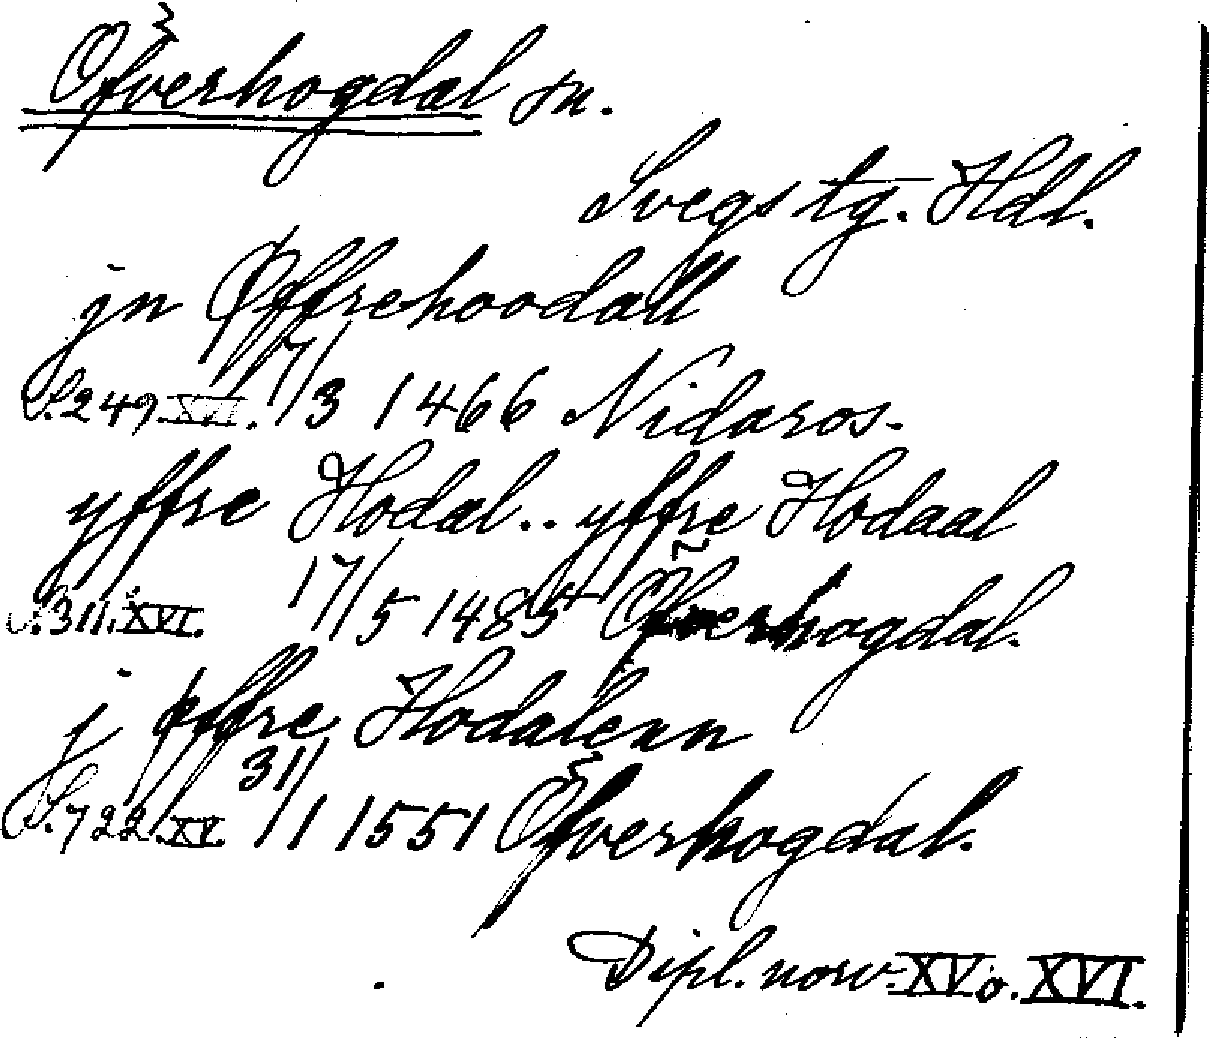 Öfverhogdal sn.
Svegs tg. Hdl.
jn Øffrehoodall
S. 249. XVI. 17/3 1466 Nidaros.
yffre Hodal.. yffre Hodaal
S. 311. XVI. 17/5 1485 Öfverhogdal.
j øffre Hodalenn
S. 722. XV. 31/1 1551 Öfverhogdal.
Dipl. norv. XV o. XVI.